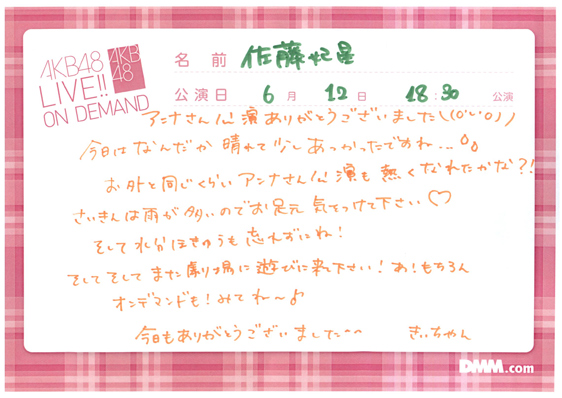 AKB48
LIVE!!
ON DEMAND
AKB
48
名前 佐藤妃星
公演日 6月 12日 18:30 公演
アンナさん公演ありがとうございました\(○'ν'○)/
今日はなんだか晴れて少しあつかったですね...
お外と同じくらいアンナさん公演も熱くなれたかな?!
さいきんは雨が多いのでお足元気をつけて下さい♡
そして水分ほきゅうも忘れずにね!
そしてそしてまた劇場に遊びに来て下さい!あ!もちろん
オンデマンドも!みてね〜♪
今日もありがとうございました〜〜 きぃちゃん
DMM.com